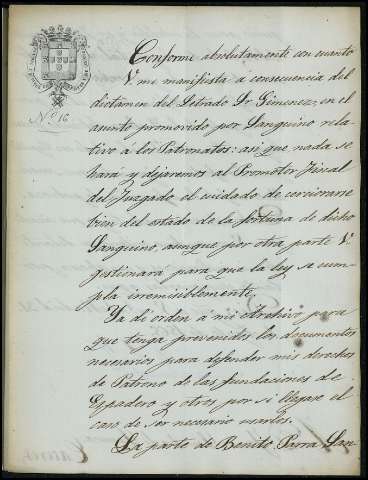 Nº 16
Conforme absolutamente con cuanto
V. me manifiesta á consecuencia del
dictamen del Letrado Sr Gimenez, en el
asunto promovido por Sanguino rela-
tivo á los Patronatos: asi que nada se
hará y dejaremos al Promotor Fiscal
del Juzgado el cuidado de cerciorarse
bien del estado de la fortuna de dicho
Sanguino, aunque por otra parte V.
gestionará para que la ley se cum-
pla irremisiblemente.
Ya di orden á mi Archivo para
que tenga prevenidos los documentos
necesarios para defender mis derechos
de Patrono de las fundaciones de
Espadero y otros por si llegase el
caso de ser necesario usarlos.
La parte de Benito Parra San-